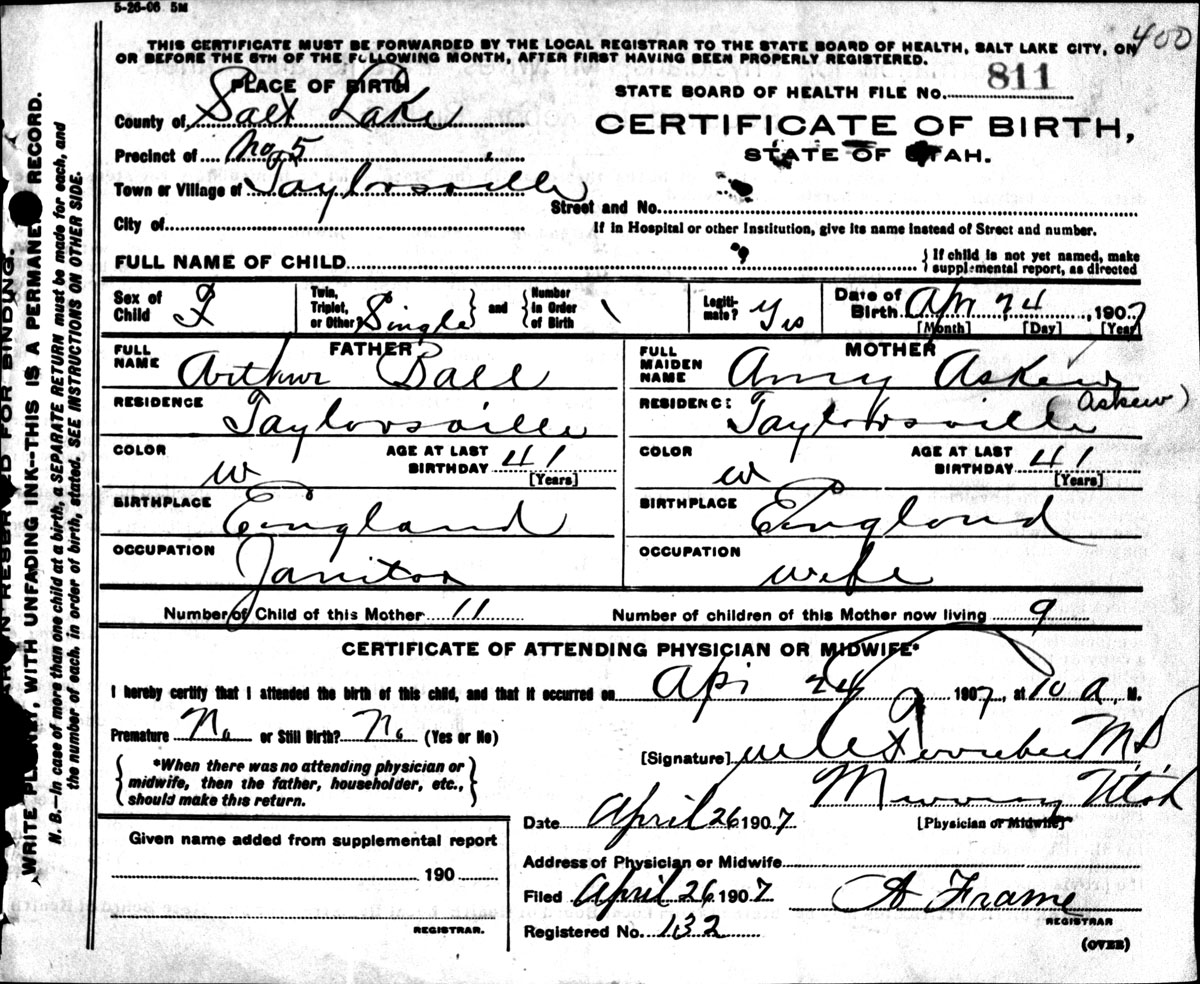 5-26-06 5M
400
THIS CERTIFICATE MUST BE FORWARDED BY THE LOCAL REGISTRAR TO THE STATE BOARD OF HEALTH, SALT LAKE CITY, ON
OR BEFORE THE 5TH OF THE FOLLOWING MONTH, AFTER FIRST HAVING BEEN PROPERLY REGISTERED.
PLACE OF BIRTH
STATE BOARD OF HEALTH FILE No. 811
County of Salt Lake
CERTIFICATE OF BIRTH,
STATE OF UTAH.
Precinct of No. 5
Town or Village of Taylorsville
Street and No.
City of
If in Hospital or other Institution, give its name instead of Street and number.
FULL NAME OF CHILD ? { If child is not yet named, make supplemental report, as directed
Sex of Child F
Twin, Triplet, or Other Single } and { Number in Order of Birth 1
Legiti-mate? Yes
Date of Birth Apr 24, 1907
[Month] [Day] [Year]
FATHER
FULL NAME Arthur Ball
RESIDENCE Taylorsville
COLOR W AGE AT LAST BIRTHDAY 41
[Years]
BIRTHPLACE England
OCCUPATION Janitor
MOTHER
FULL MAIDEN NAME Amy Askew
(Askew)
RESIDENCE Taylorsville
COLOR W AGE AT LAST BIRTHDAY 41
[Years]
BIRTHPLACE England
OCCUPATION wife
Number of Child of this Mother 11 Number of children of this Mother now living 9
CERTIFICATE OF ATTENDING PHYSICIAN OR MIDWIFE*
I hereby certify that I attended the birth of this child, and that it occurred on Apr 24 1907, at 10 a. M.
Premature No or Still Birth? No (Yes or No)
{ *When there was no attending physician or
midwife, then the father, householder, etc.,
should make this return. }
[Signature] M D
Murray Utah
[Physician or Midwife]
Date April 26 1907
Given name added from supplemental report
190
REGISTRAR.
Address of Physician or Midwife
Filed April 26 1907 A Frame
REGISTRAR
Registered No. 132
(OVER)
RESERVED FOR BINDING.
WRITE PLAINLY, WITH UNFADING INK--THIS IS A PERMANENT RECORD.
N. B.--In case of more than one child at a birth, a SEPARATE RETURN must be made for each, and
the number of each, in order of birth, stated. SEE INSTRUCTIONS ON OTHER SIDE.